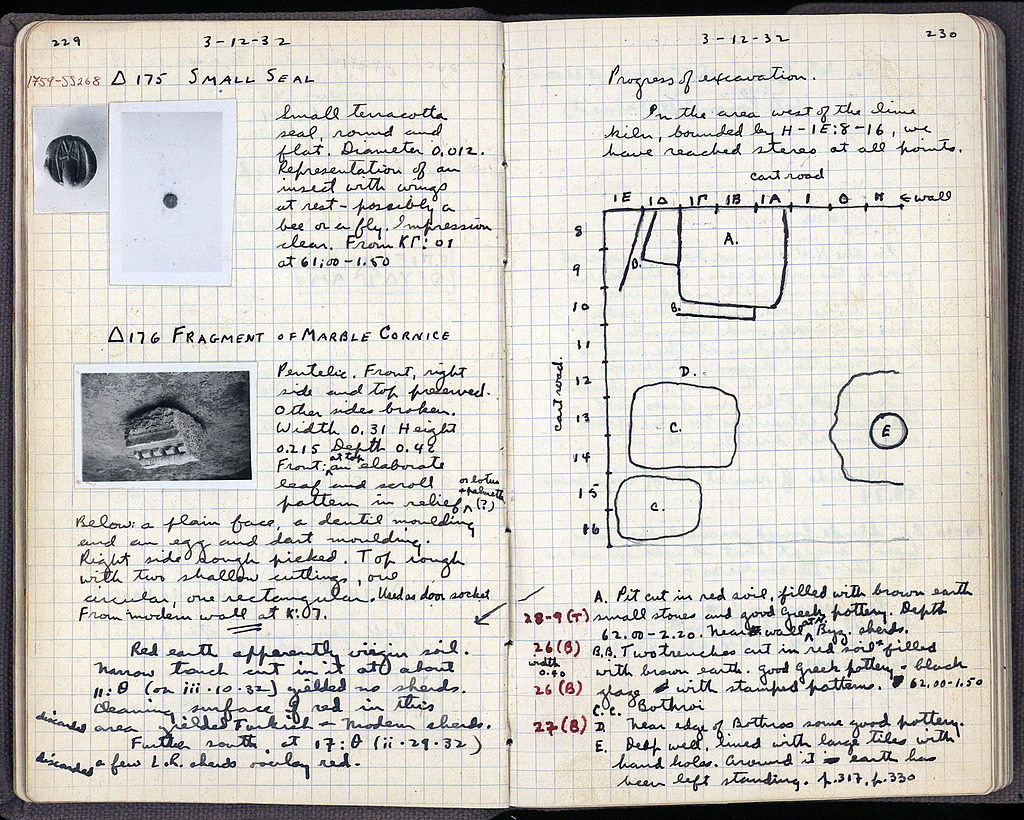 229
3-12-32
1759-SS268 Δ 175 SMALL SEAL
Small terracotta
seal, round and
flat. Diameter 0,012.
Representation of an
insect with wings
at rest - possibly a
bee or a fly. Impression
clear. From ΚΓ: 01
at 61,00-1.50
Δ176 FRAGMENT OF MARBLE CORNICE
Pentelic. Front, right
side and top preserved.
Other sides broken.
Width 0.31 Height
0.215 Depth 0.42
at top
Front: an elaborate
leaf and scroll
or lotus
+ palmette
pattern in relief (?)
Below: a plain face, a dentil moulding
and an egg and dart moulding.
Right side rough picked. Top rough
with two shallow cuttings, one
circular, one rectangular. Used as door socket
From modern wall at K:07.
Red earth apparently virgin soil.
Narrow trench cut in it at about
11:Θ (on iii.10.32) yielded no sherds.
Cleaning surface of red in this
discarded area yielded Turkish + Modern sherds.
Further south, at 17:Θ (ii.29.32)
discarded a few L.R. sherds overlay red.
3-12-32
230
Progress of excavation.
In the area west of the lime
kiln, bounded by H-IE:8-16, we
have reached stereo at all points.
cart road
IE ΙΔ ΙΓ ΙΒ ΙΑ Ι Θ Η ←wall
8
A.
9
B.
10
B.
11
cart road.
12
D.
13
C.
E
14
15
C.
16
A. Pit cut in red soil, filled with brown earth
28-9 (T) small stones and good Greek pottery. Depth
62.00-2.20. Near wall Byz. sherds.
26 (B) B,B. Two trenches cut in red soil filled
width
0.40
with brown earth. Good Greek pottery - black
26 (B) glaze with stamped patterns. 62,00-1.50
C.C. Bothroi
27 (B) D. Near edge of Bothros some good pottery.
E. Deep well, lined with large tiles with
hand holes. Around it earth has
been left standing. p.317, p.330